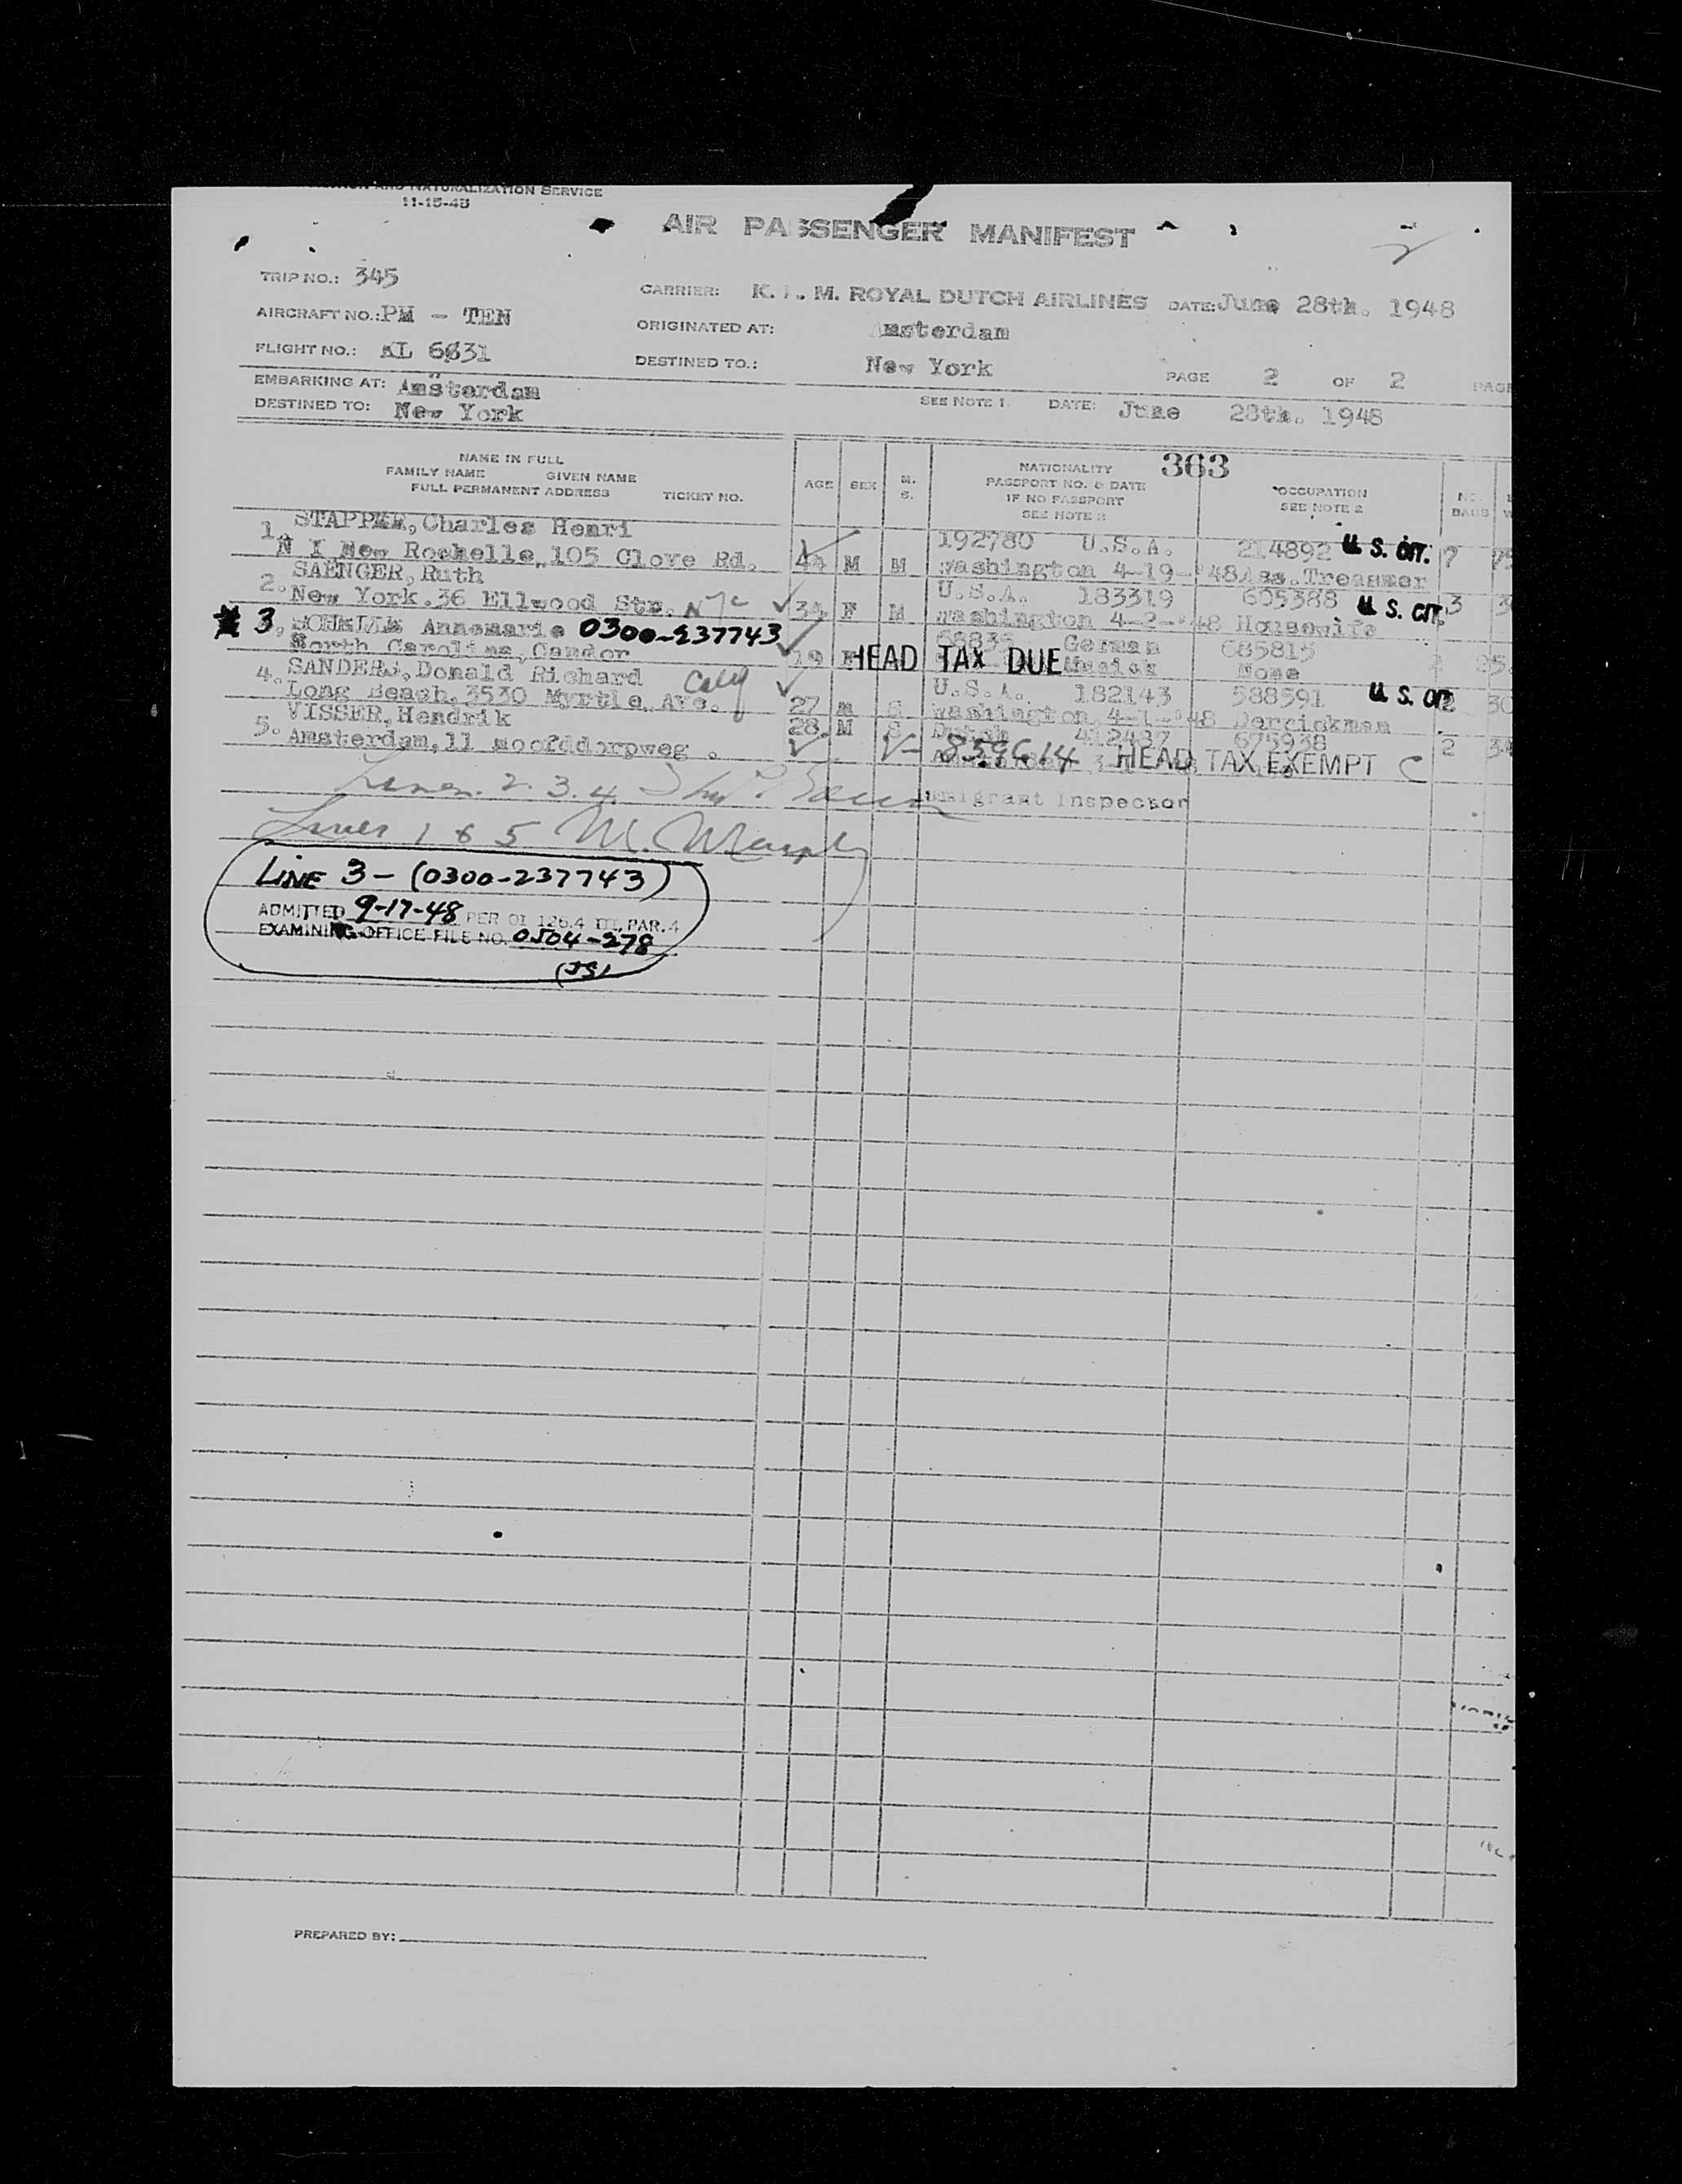 AND NATURALIZATION SERVICE
11-15-43
AIR PASSENGER MANIFEST
2
TRIP NO.: 345
CARRIER: K. L. M. ROYAL DUTCH AIRLINES DATE: June 28th. 1948
AIRCRAFT NO.: PM - TEN
ORIGINATED AT: Amsterdam
FLIGHT NO.: KL 6831
DESTINED TO.: New York
PAGE 2 OF 2 PAGE
EMBARKING AT: Amsterdam
SEE NOTE 1. DATE: June 28th. 1948
DESTINED TO: New York
363
NAME IN FULL
FAMILY NAME GIVEN NAME
FULL PERMANENT ADDRESS TICKET NO.
AGE SEX M. S.
NATIONALITY
PASSPORT NO. & DATE
IF NO PASSPORT
SEE NOTE 3
OCCUPATION
SEE NOTE 2
NO. BAGS
1. Charles Henri 192780 U.S.A. 214892 U. S. CIT. 7
New Rochelle, 105 Clove Rd. 44 M M Washington 4-19-'48 Ass. Treasurer
2. SAENGER, Ruth U.S.A. 183319 605388 U. S. CIT. 3
New York. 36 Ellwood Str. NYC 34 F M Washington 4-2-'48 Housewife
3. Annemarie 0300-237743 German 685815
North Carolina, Candor 19 HEAD TAX DUE Munich None
4. SANDERS, Donald Richard U.S.A. 182143 588591 U. S. CIT 30
Long Beach, 3530 Myrtle Ave. 27 m S Washington 4-1-'48 Derrickman
5. VISSER, Hendrik 28 M S Dutch 412437 675938 2
Amsterdam, 11 Hoofddorpweg . V- 859614 HEAD TAX EXEMPT C
Lines. 2. 3. 4.
Immigrant Inspector
Lines 1 & 5 M. Murphy
LINE 3 - (0300-237743)
ADMITTED 9-17-48 PER OI 126.4 III, PAR. 4
EXAMINING OFFICE FILE NO. 0504-278
(JS)
PREPARED BY: